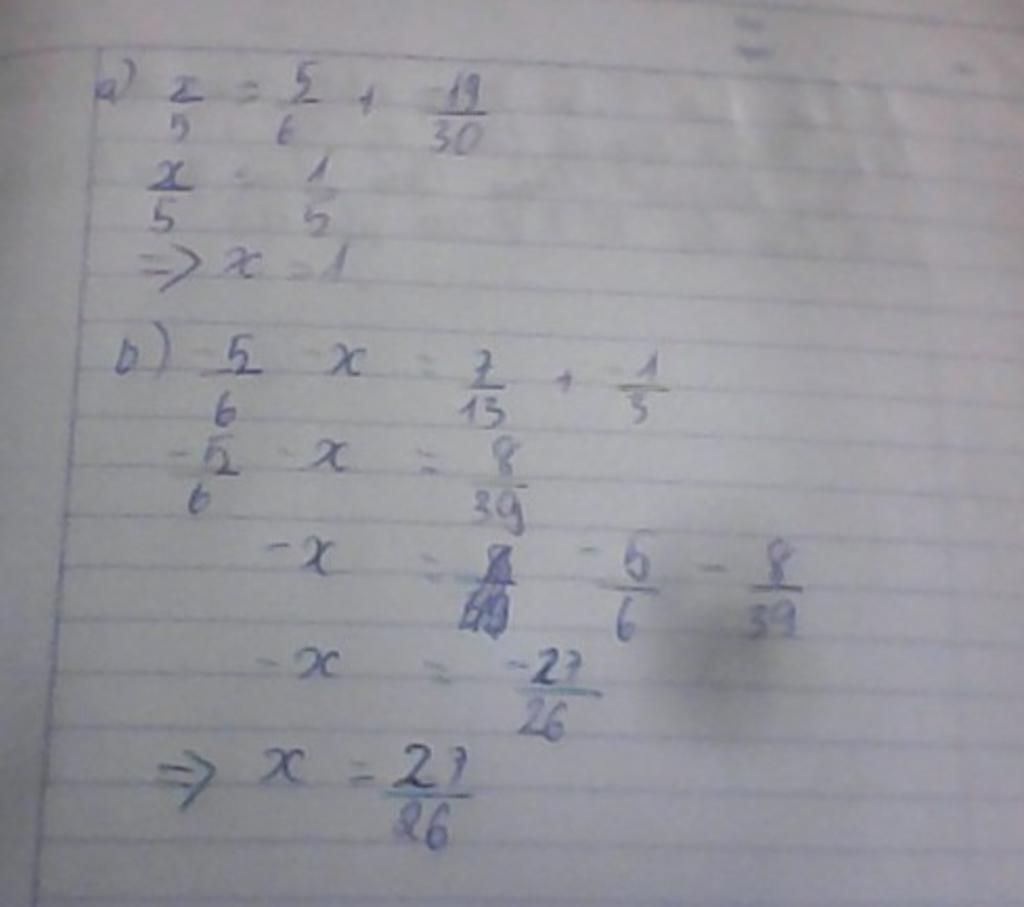 a) x/5 = 5/6 + -19/30
x/5 = 1/5
=> x = 1
b) -5/6 - x = 7/13 + -1/3
-5/6 - x = 8/39
-x = -5/6 - 8/39
-x = -27/26
=> x = 27/26